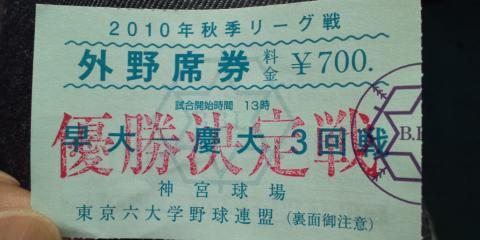 2010年秋季リーグ戦
外野席券 料金 ¥700.
試合開始時間 13時
優勝決定戦
早大 慶大3回戦
神宮球場
東京六大学野球連盟(裏面御注意)